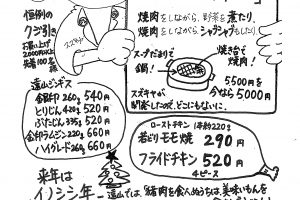 恒例の
クジ引き
お買い上げ
2,000円以上
先着100名
焼肉をしながら、野菜を煮たり、
焼肉をしながらシャブシャブもしたり
スープだまりで
鍋!
焼き台で
焼肉!
スズキヤが
開発したのが、どこにもないに、
5500円を
今なら5000円
遠山ジンギス
金印 260g 540円
とりじん 420g 520円
ぶたじん 335g 520円
金印ラムジン 220g 660円
ハイグレード 260g 660円
ローストチキン 1本約220g
若どりモモ焼 290円
フライドチキン 520円
4ピース
来年は
イノシシ年
遠山では、猪肉を食べぬうちは、美味いもんを